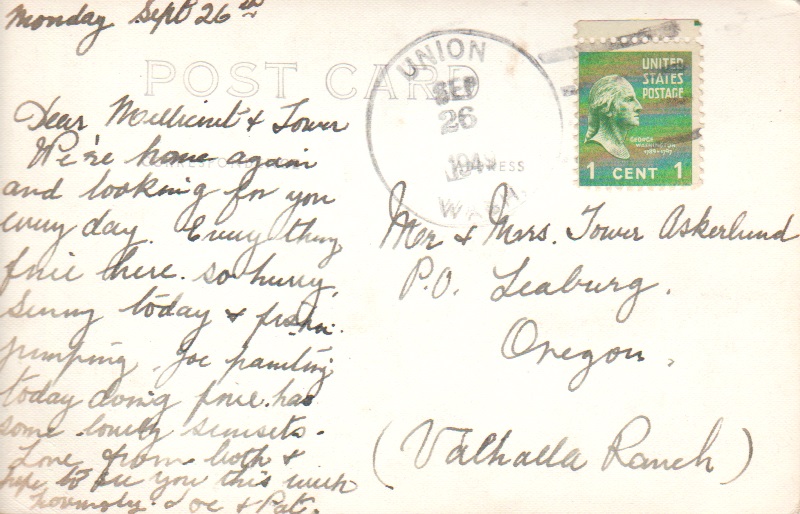 Monday Sept 26th
POST CARD
Dear Millicent & Tower
We're home again
and looking for you
every day. Everything
fine here. so hurry.
Sunny today & fish
jumping. Joe painting
today doing fine. has
some lovely sunsets.
Love from both &
hope to see you this week
Joe & Pat.
UNION
SEP
26
194
WASH
UNITED
STATES
POSTAGE
GEORGE
WASHINGTON
1789-1797
1 CENT 1
Mr & Mrs. Tower Askerlund
P.O. Leaburg.
Oregon.
(Valhalla Ranch)